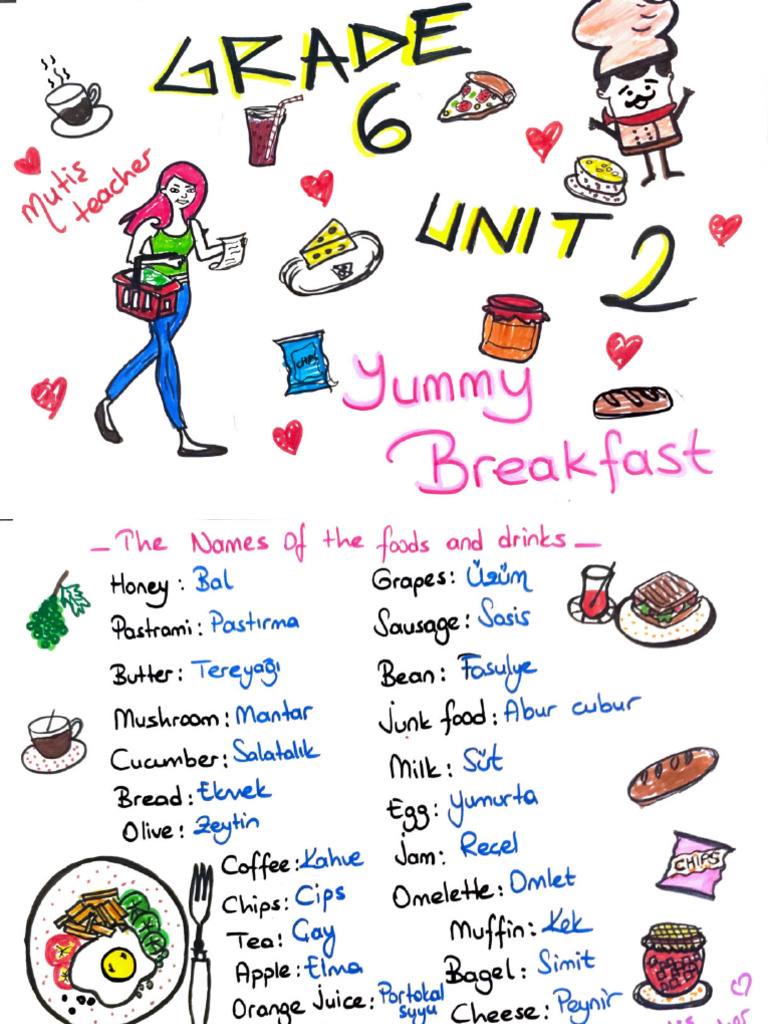 GRADE
6
mutiş
teacher
UNIT 2
CHIPS
Yummy
Breakfast
_ The Names Of the foods and drinks _
Honey : Bal
Pastrami : Pastırma
Butter : Tereyağı
Mushroom : Mantar
Cucumber : Salatalık
Bread : Ekmek
Olive : Zeytin
Coffee : Kahve
Chips : Cips
Tea : Çay
Apple : Elma
Orange Juice : Portokal
suyu
Grapes : Üzüm
Sausage : Sosis
Bean : Fasulye
Junk food : Abur cubur
Milk : Süt
Egg : Yumurta
Jam : Reçel
Omelette : Omlet
Muffin : Kek
Bagel : Simit
Cheese : Peynir
CHIPS